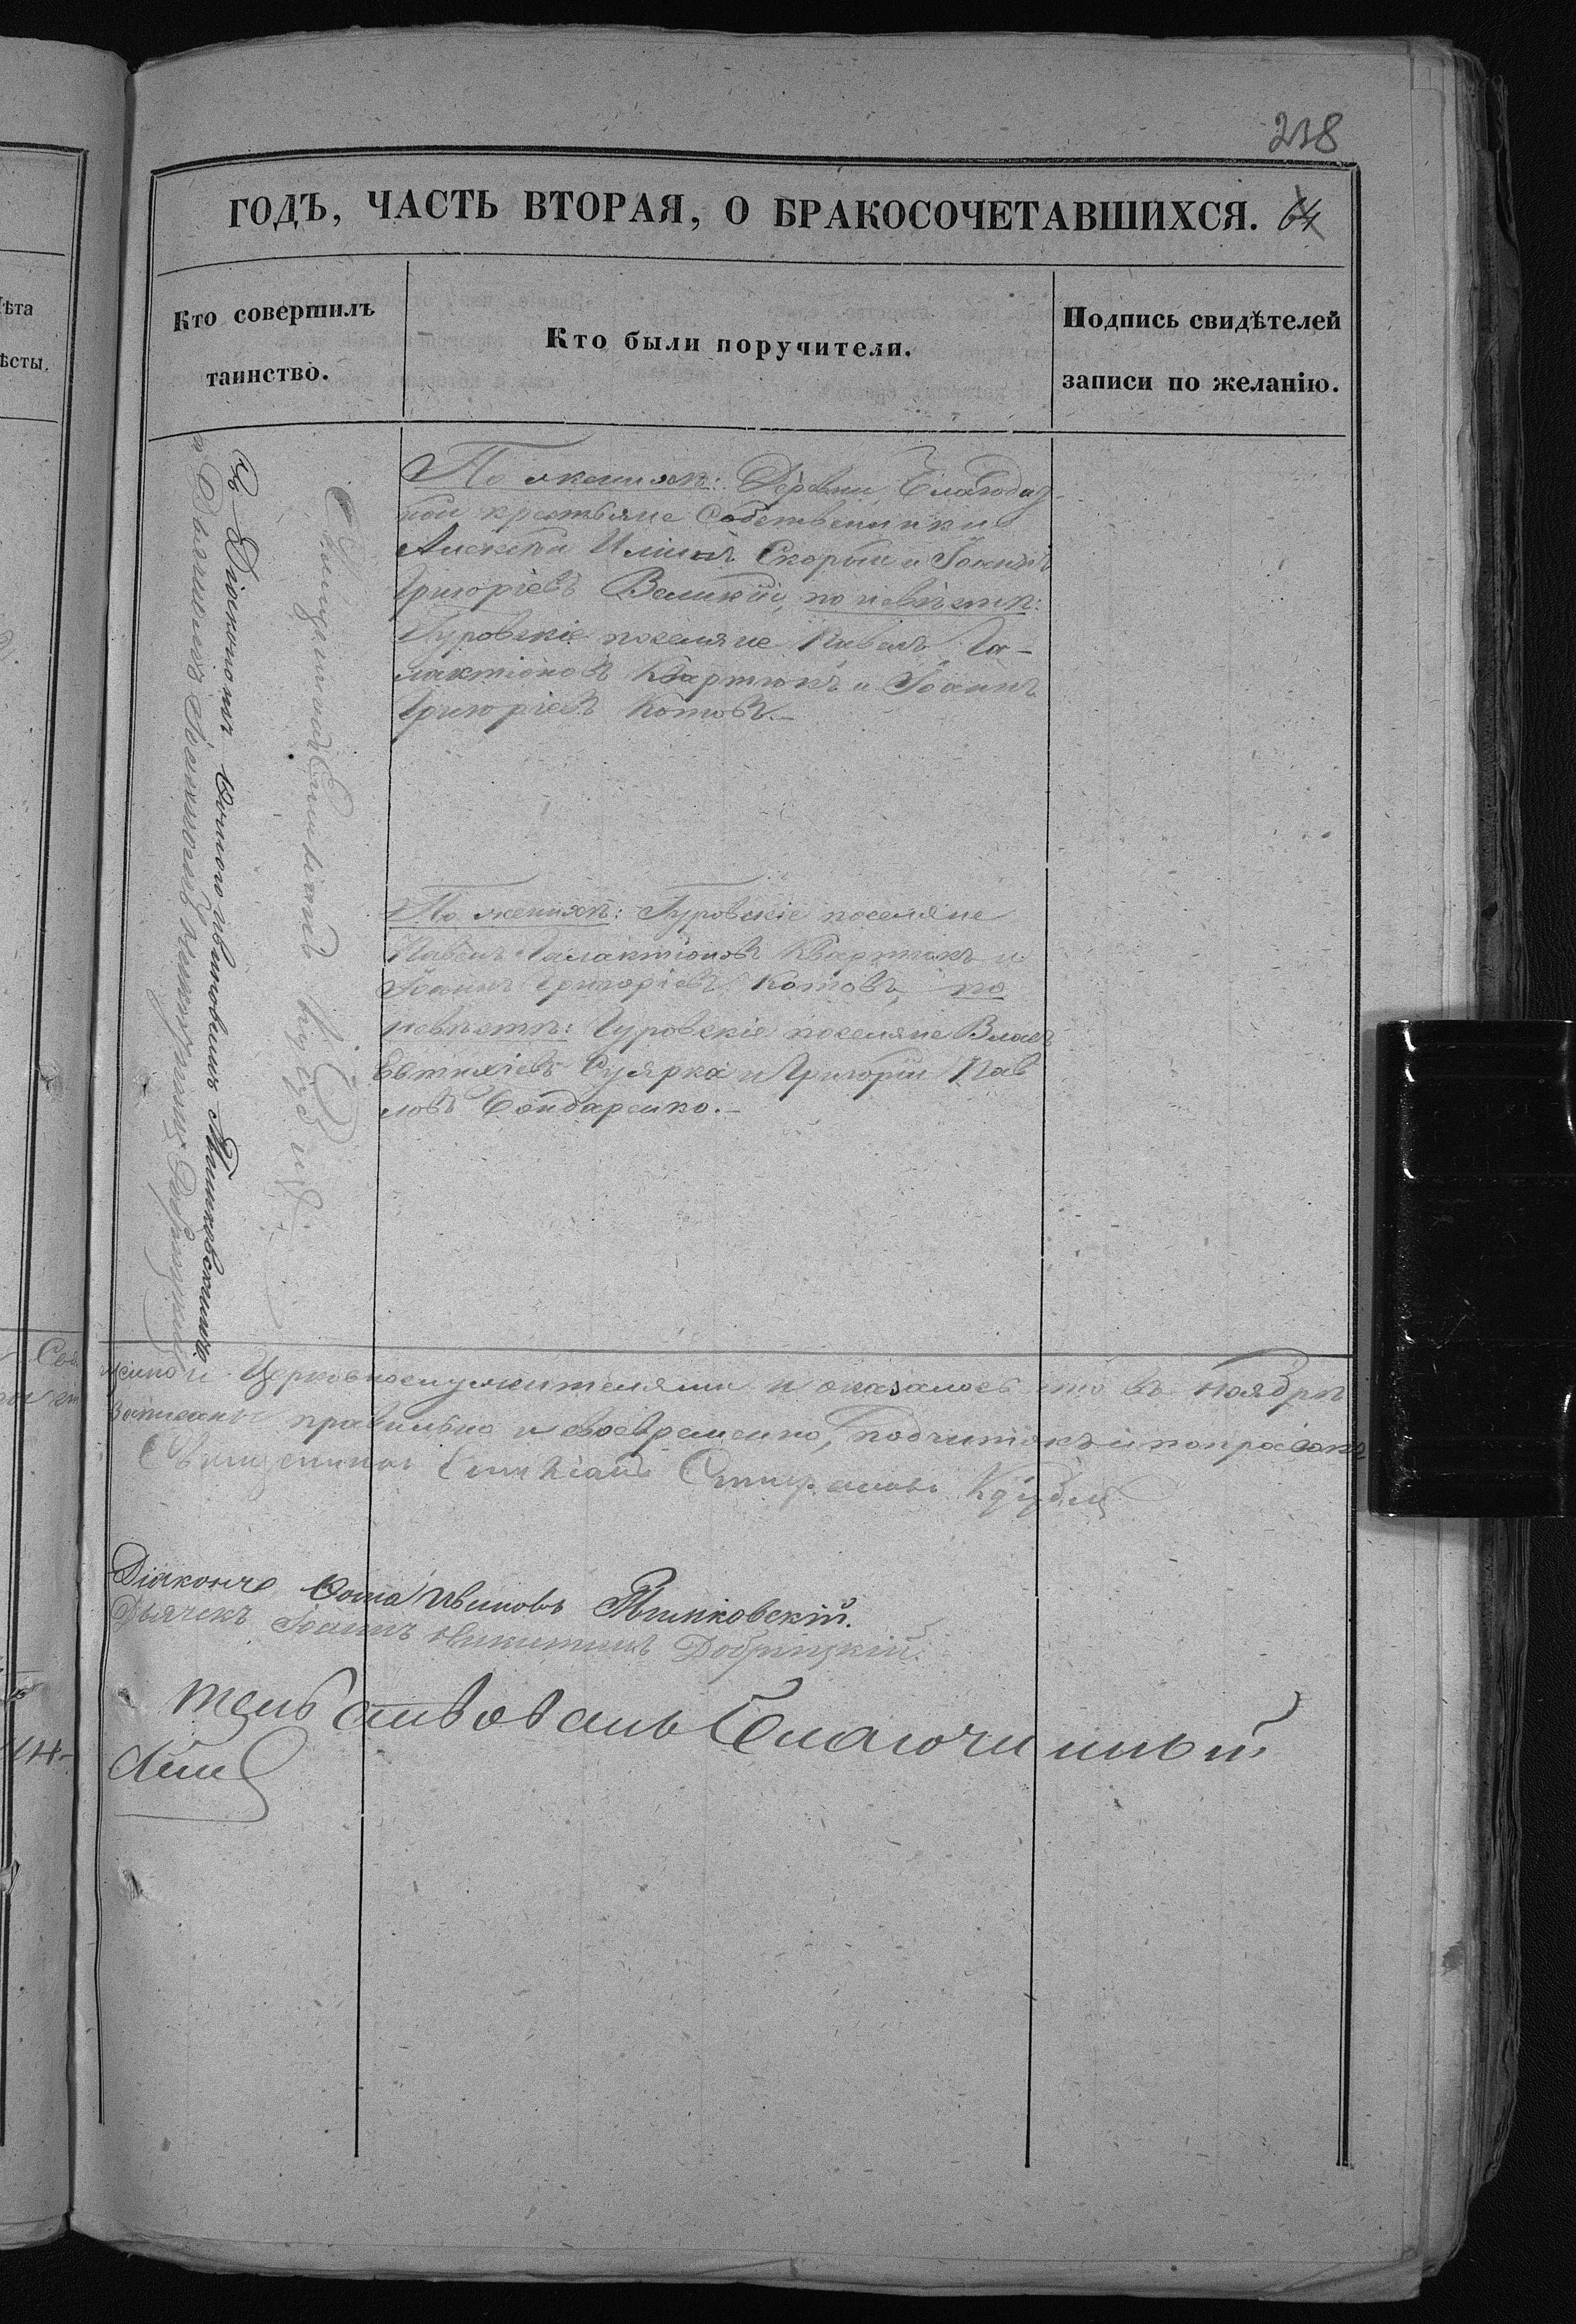 238
ГОДЪ, ЧАСТЬ ВТОРАЯ, О БРАКОСОЧЕТАВШИХСЯ. 64
ѣта
ѣсты.
Кто совершилъ
таинство.
Кто были поручители.
Подпись свидѣтелей
записи по желанію.
Священникъ Емиліанъ
съ Діакономъ Ѳомою Ивановымъ
и Дьячкомъ Іоанномъ Никитинымъ
По женихѣ: Деревни Благодат-
ной крестьяне собственники
Алексѣй Ильинъ Скорый и Іоаннъ
Григоріевъ Великій, по невѣстѣ:
Гуровскіе поселяне Павелъ Га-
лактіоновъ Квартюкъ и Іоаннъ
Григоріевъ Котовъ.—
По женихѣ: Гуровскіе поселяне
Павелъ Галактіоновъ Квартюкъ и
Іоаннъ Григоріевъ Котовъ, по
невѣстѣ: Гуровскіе поселяне Власъ
Евтихіевъ Сулярка и Григорій Пав
ловъ Бондаренко.—
Церковнослужителями и оказалось что въ Ноябрѣ
записаны правильно и своевременно, подчистокъ и поправокъ
Священникъ Емиліанъ
Діаконъ Ѳома Ивановъ
Дьячекъ Іоаннъ Никитинъ Добрицкій.
тельствовалъ Благочинный